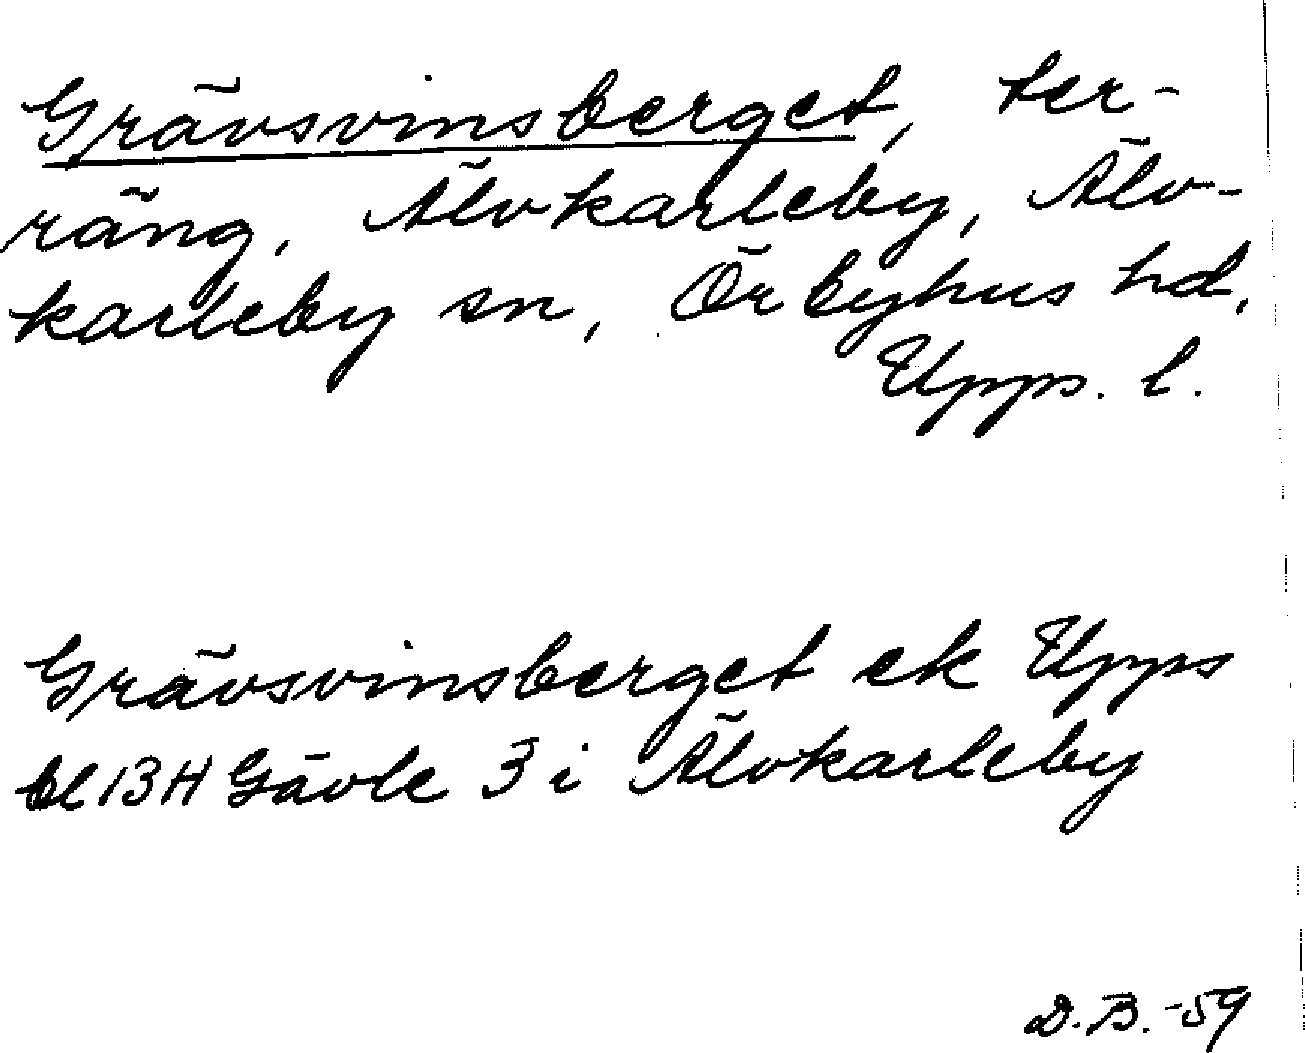 Grävsvinsberget, ter-
räng, Älvkarleby, Älv-
karleby sn, Örbyhus hd,
Upps. l.
Grävsvinsberget ek Upps
bl 13H Gävle 3 i Älvkarleby
D.B.-59